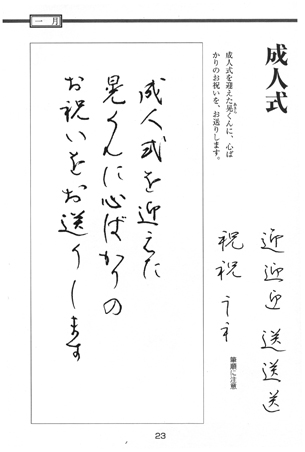 一月
成人式
成人式を迎えた晃くんに、心ば
あきら
かりのお祝いを、お送りします。
迎迎迎送送送
祝祝ラネ
筆順に注意
成人式を迎えた
晃くんに心ばかりの
お祝いをお送りします
23